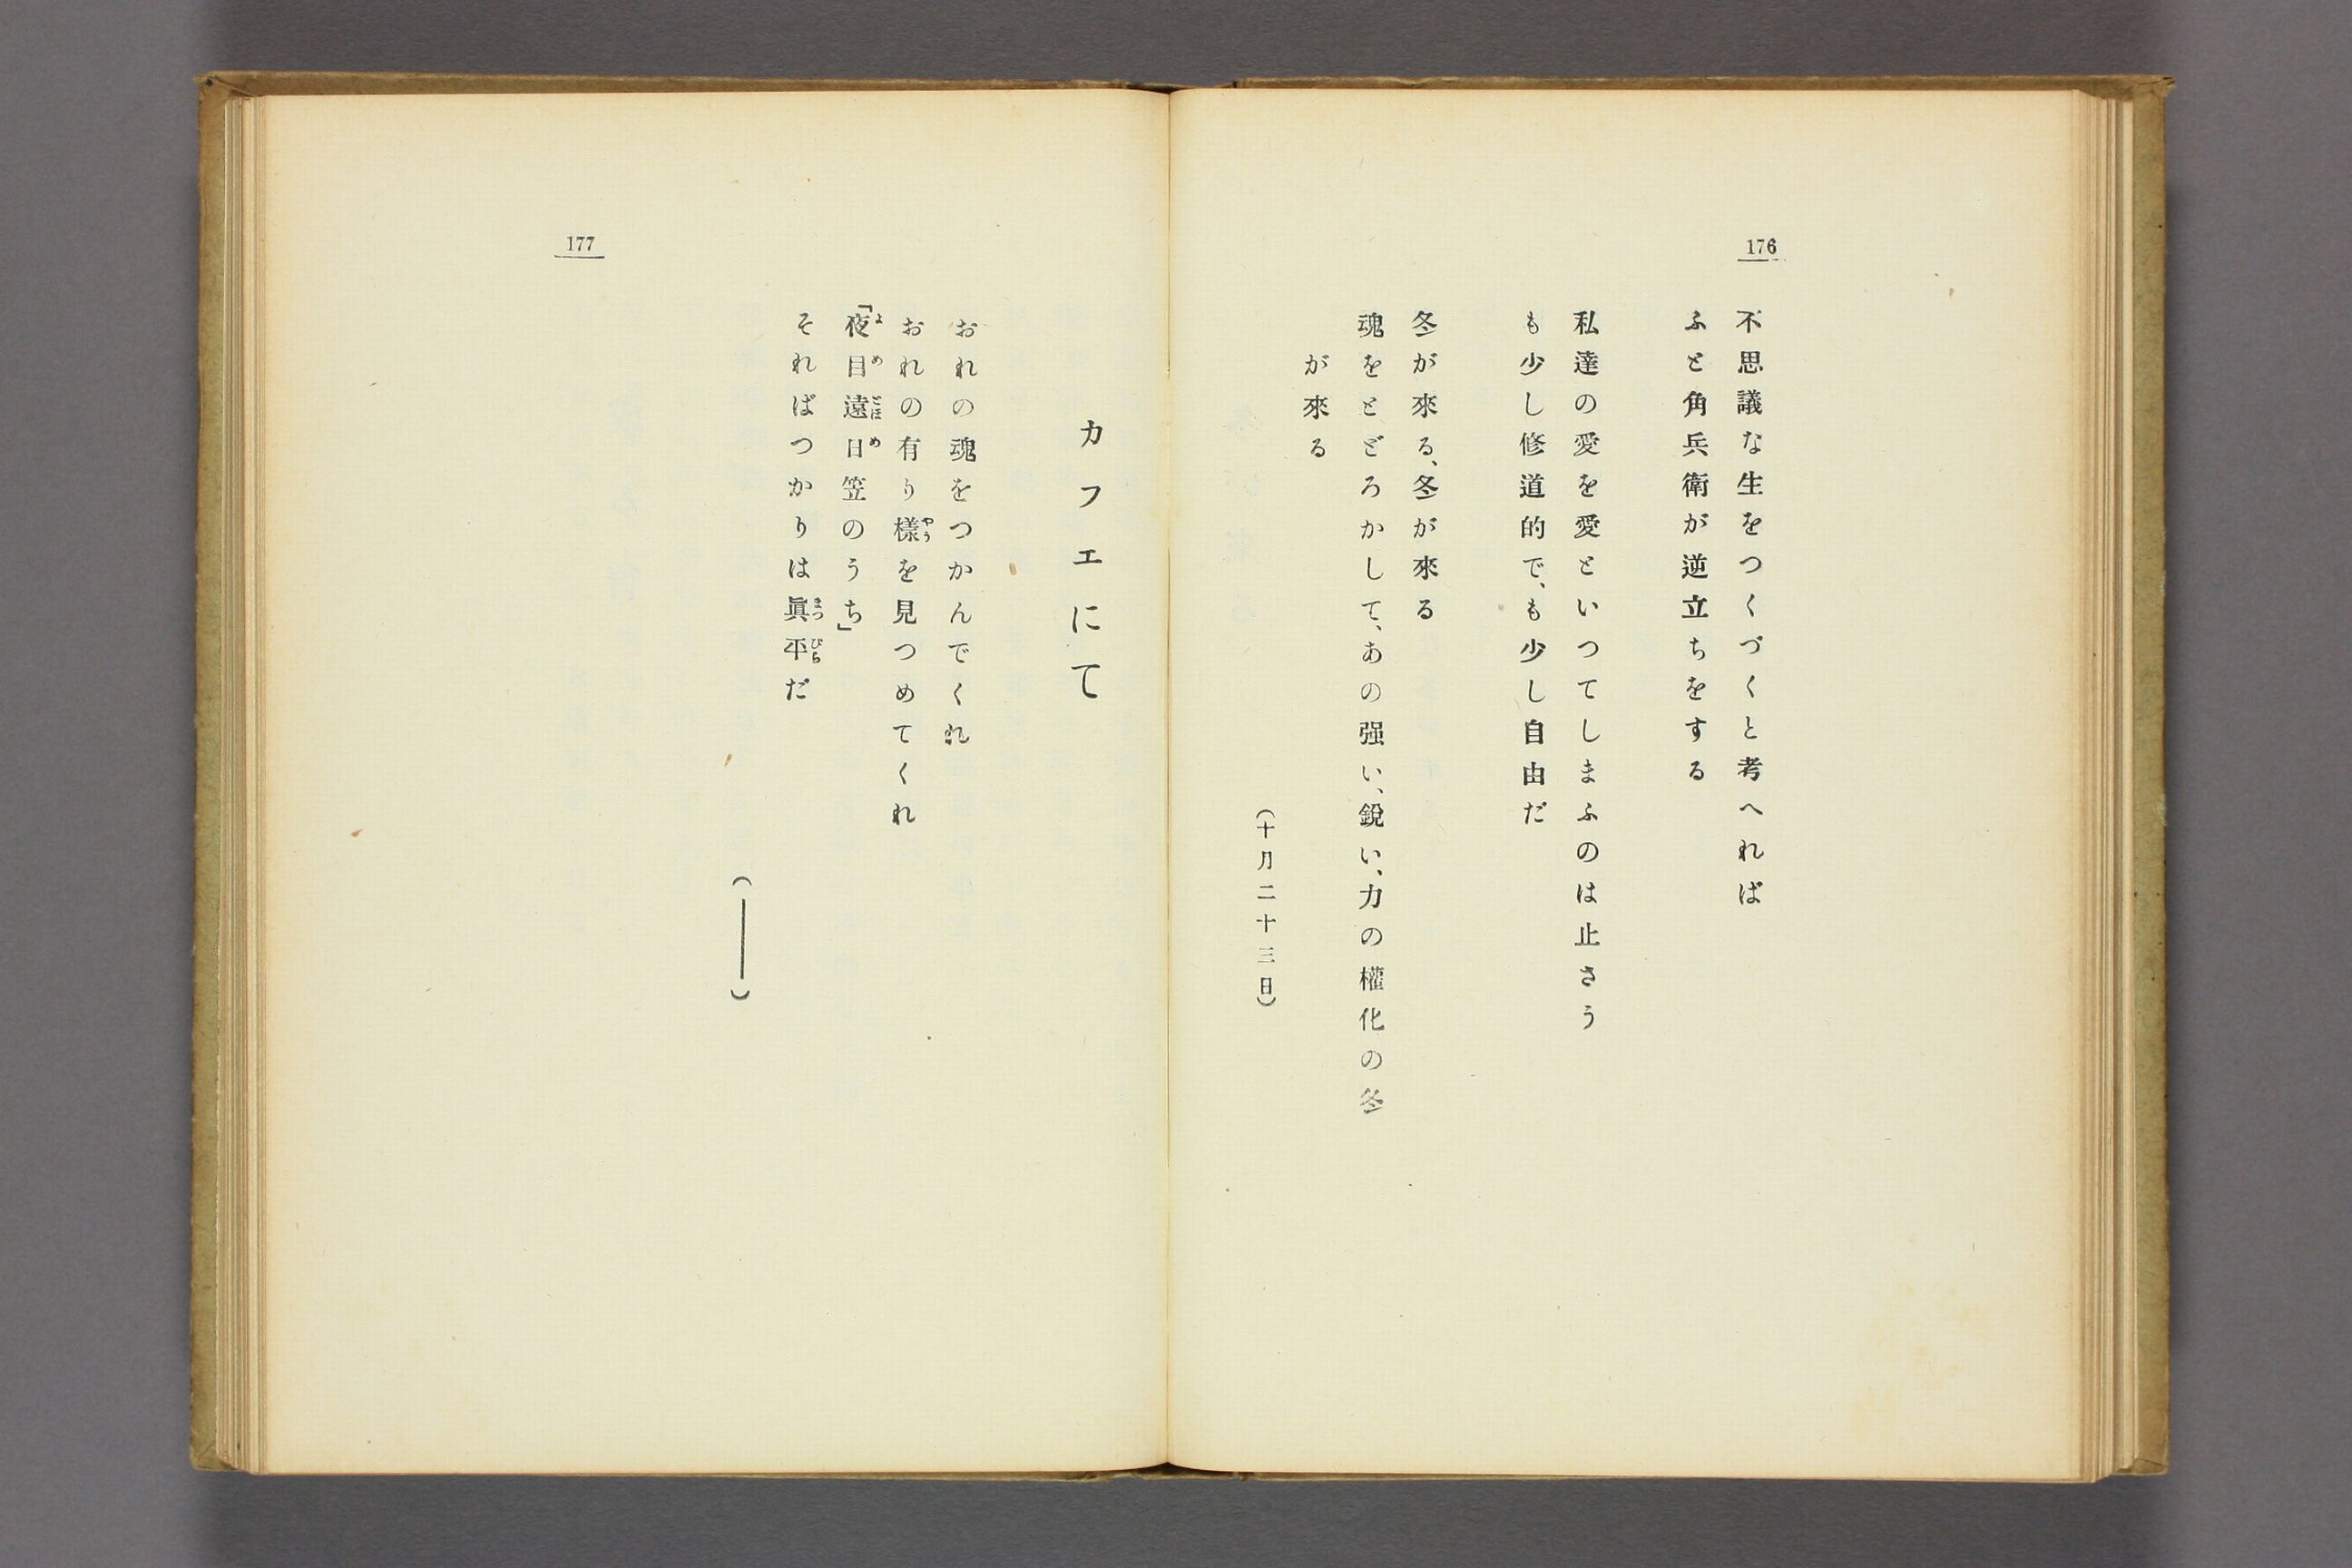 176
不思議な生をつくづくと考へれば
ふと角兵衛が逆立ちをする
私達の愛を愛といつてしまふのは止さう
も少し修道的で、も少し自由だ
冬が來る、冬が來る
魂をとどろかして、あの强い、鋭い、力の權化の冬
が來る
(十月二十三日)
177
カフエにて
おれの魂をつかんでくれ
おれの有り樣を見つめてくれ
「夜目遠目笠のうち」
そればつかりは眞平だ
(――)